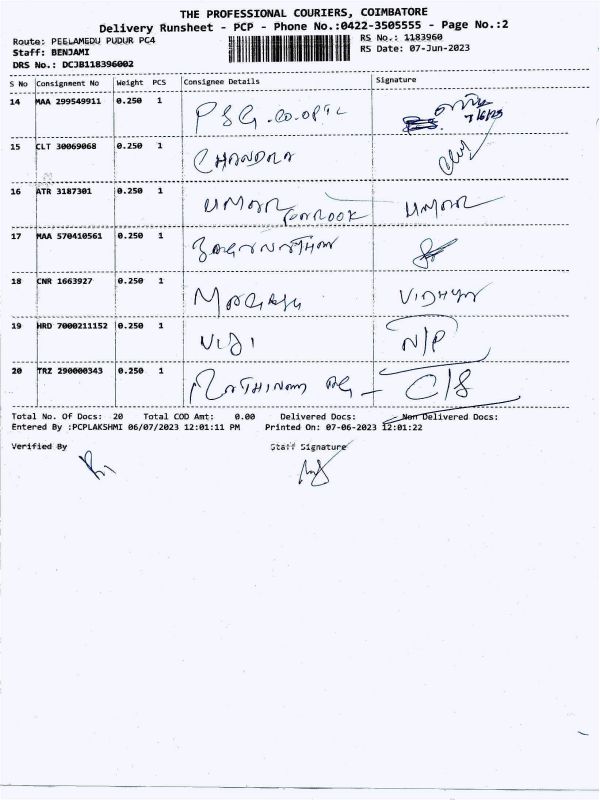 THE PROFESSIONAL COURIERS, COIMBATORE
Delivery Runsheet - PCP - Phone No.:0422-3505555 - Page No.:2
Route: PEELAMEDU PUDUR PC4
RS No.: 1183960
Staff: BENJAMI
RS Date: 07-Jun-2023
DRS No.: DCJB118396002
S No Consignment No Weight PCS Consignee Details Signature
14 MAA 299549911 0.250 1 PSG.CO.OPTL
7/6/23
15 CLT 30069068 0.250 1 CHANDRA
16 ATR 3187301 0.250 1 UMAR FAROOK UMAR
17 MAA 570410561 0.250 1
18 CNR 1663927 0.250 1 VIDHYA
19 HRD 7000211152 0.250 1 VIJI N/P
20 TRZ 290000343 0.250 1 C/S
Total No. Of Docs: 20 Total COD Amt: 0.00 Delivered Docs: Non Delivered Docs:
Entered By :PCPLAKSHMI 06/07/2023 12:01:11 PM Printed On: 07-06-2023 12:01:22
Verified By Staff Signature